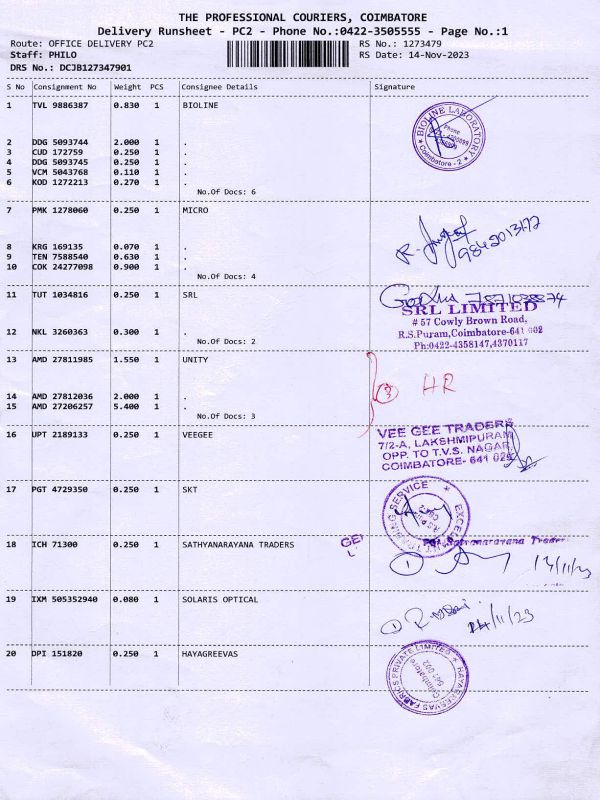 THE PROFESSIONAL COURIERS, COIMBATORE
Delivery Runsheet - PC2 - Phone No.:0422-3505555 - Page No.:1
Route: OFFICE DELIVERY PC2 RS No.: 1273479
Staff: PHILO RS Date: 14-Nov-2023
DRS No.: DCJB127347901
S No Consignment No Weight PCS Consignee Details Signature
1 TVL 9886387 0.830 1 BIOLINE
BIOLINE LABORATORY
Phone
Coimbatore - 2
2 DDG 5093744 2.000 1 .
3 CUD 172759 0.250 1 .
4 DDG 5093745 0.250 1 .
5 VCM 5043768 0.110 1 .
6 KOD 1272213 0.270 1 .
No.Of Docs: 6
7 PMK 1278060 0.250 1 MICRO
8 KRG 169135 0.070 1 .
9 TEN 7588540 0.630 1 .
10 COK 24277098 0.900 1 .
No.Of Docs: 4
11 TUT 1034816 0.250 1 SRL
SRL LIMITED
# 57 Cowly Brown Road,
R.S.Puram,Coimbatore-641 002
Ph:0422-4358147,4370117
12 NKL 3260363 0.300 1 .
No.Of Docs: 2
13 AMD 27811985 1.550 1 UNITY
3 HR
14 AMD 27812036 2.000 1 .
15 AMD 27206257 5.400 1 .
No.Of Docs: 3
16 UPT 2189133 0.250 1 VEEGEE
VEE GEE TRADERS
7/2-A, LAKSHMIPURAM
OPP. TO T.V.S. NAGAR,
COIMBATORE- 641 025
17 PGT 4729350 0.250 1 SKT
18 ICH 71300 0.250 1 SATHYANARAYANA TRADERS
1 13/11/23
19 IXM 505352940 0.080 1 SOLARIS OPTICAL
1 14/11/23
20 DPI 151820 0.250 1 HAYAGREEVAS
HAYAGREEVAS FABRICS PRIVATE LIMITED
Coimbatore
641 002